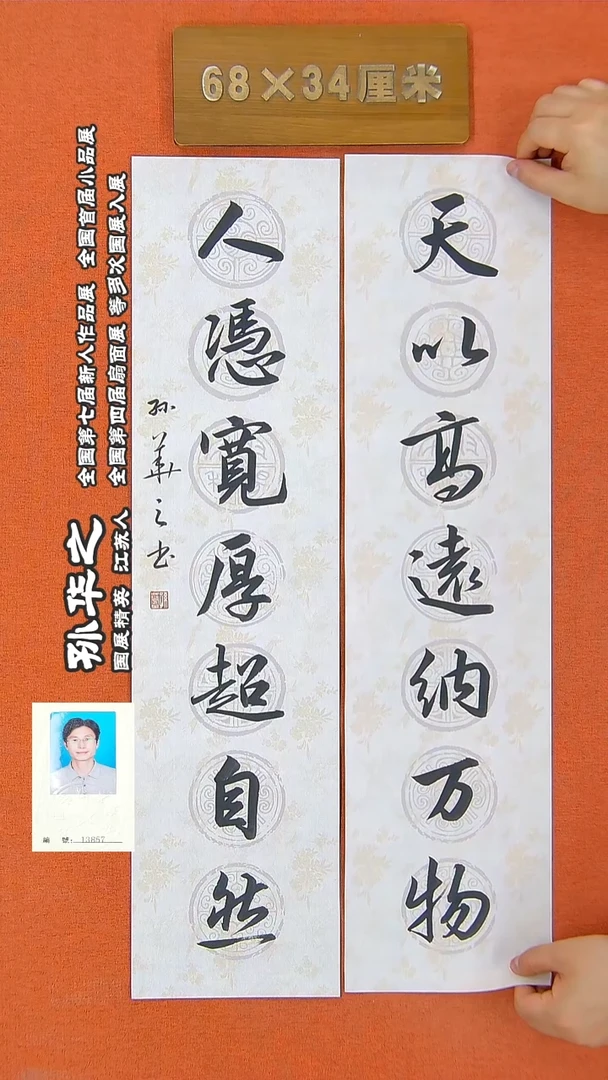 68×34厘米
天以高遠纳万物
人憑寬厚超自然
孙華之书
孙华之
国展精英 江苏人
全国第七届新人作品展 全国首届小品展
全国第四届扇面展 等多次国展入展
编 号: 13857